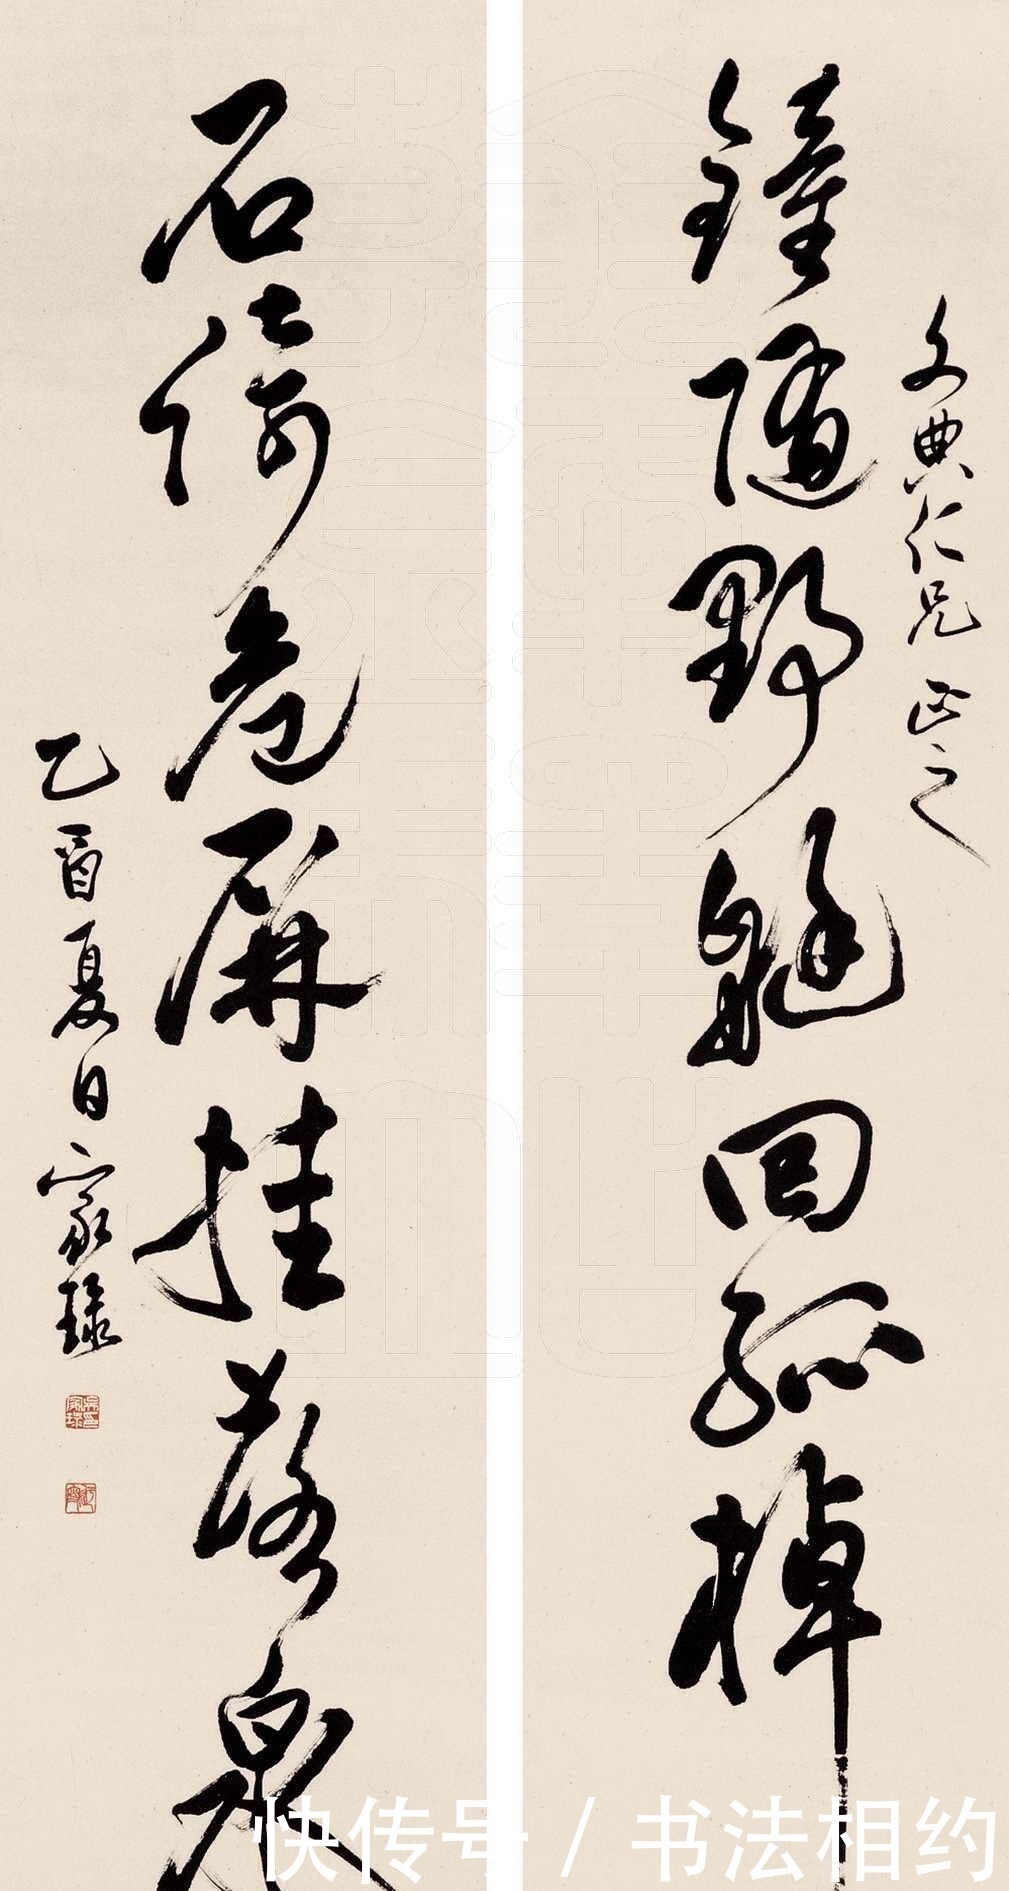 文典仁兄正之
鐘隨野艇回孤棹
石倚危屏挂落泉
乙酉夏日家琭
快传号 / 书法相约